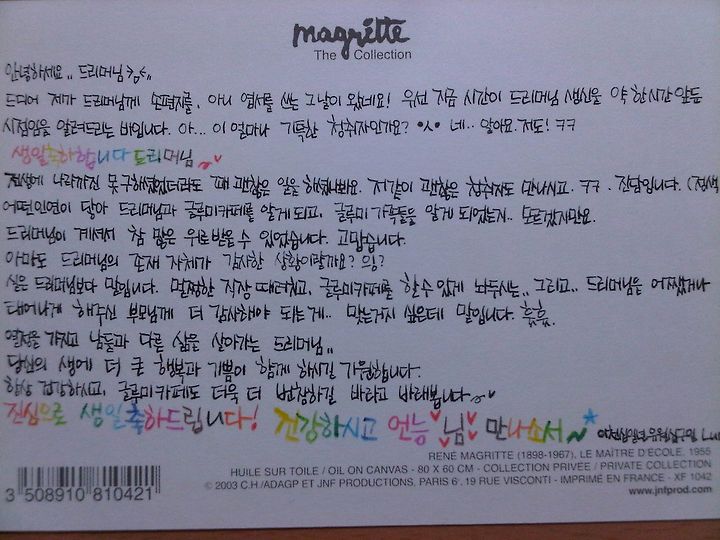 magritte
The Collection
안녕하세요,, 드리머님 >ㅅ<,,
드디어 제가 드리머님께 손편지를, 아니 엽서를 쓰는 그날이 왔네요! 우선 지금 시간이 드리머님 생신을 약 한시간 앞둔
시점임을 알려드리는 바입니다. 아... 이 얼마나 기특한 청취자인가요? •ㅅ• 네.. 알아요. 저도! ㅋㅋ
생일축하합니다 드리머님~♥
전생에 나라까진 못구하셨었더라도 꽤 괜찮은 일을 하셨나봐요. 저같이 괜찮은 청취자도 만나시고. ㅋㅋ. 진담입니다. (정색
어떤인연이 닿아 드리머님과 글루미카페를 알게 되고, 글루미 가족들을 알게 되었는지.. 모르겠지만요.
드리머님이 계셔서 참 많은 위로받을 수 있었습니다. 고맙습니다.
아마도 드리머님의 존재 자체가 감사한 상황이랄까요? 으잉?
실은 드리머님보다 말입니다. 멀쩡한 직장 때려치고, 글루미카페를 할 수 있게 놔두시는,, 그리고.. 드리머님을 어쨌거나
태어나게 해주신 부모님께 더 감사해야 되는게.. 맞는거지 싶은데 말입니다. 흠흠.
열정을 가지고 남들과 다른 삶을 살아가는 드리머님,,
당신의 생에 더 큰 행복과 기쁨이 함께 하시길 기원합니다.
항상 건강하시고, 글루미카페도 더욱 더 번창하길 바라고 바래봅니다~♥
진심으로 생일축하드립니다! 건강하시고 언능♥님♥만나소서~*
RENÉ MAGRITTE (1898-1967), LE MAÎTRE D'ÉCOLE, 1955
HUILE SUR TOILE / OIL ON CANVAS - 80 X 60 CM - COLLECTION PRIVÉE / PRIVATE COLLECTION
© 2003 C.H./ADAGP ET JNF PRODUCTIONS, PARIS 6e, 19 RUE VISCONTI - IMPRIMÉ EN FRANCE - XF 1042
www.jnfprod.com
3 508910 810421